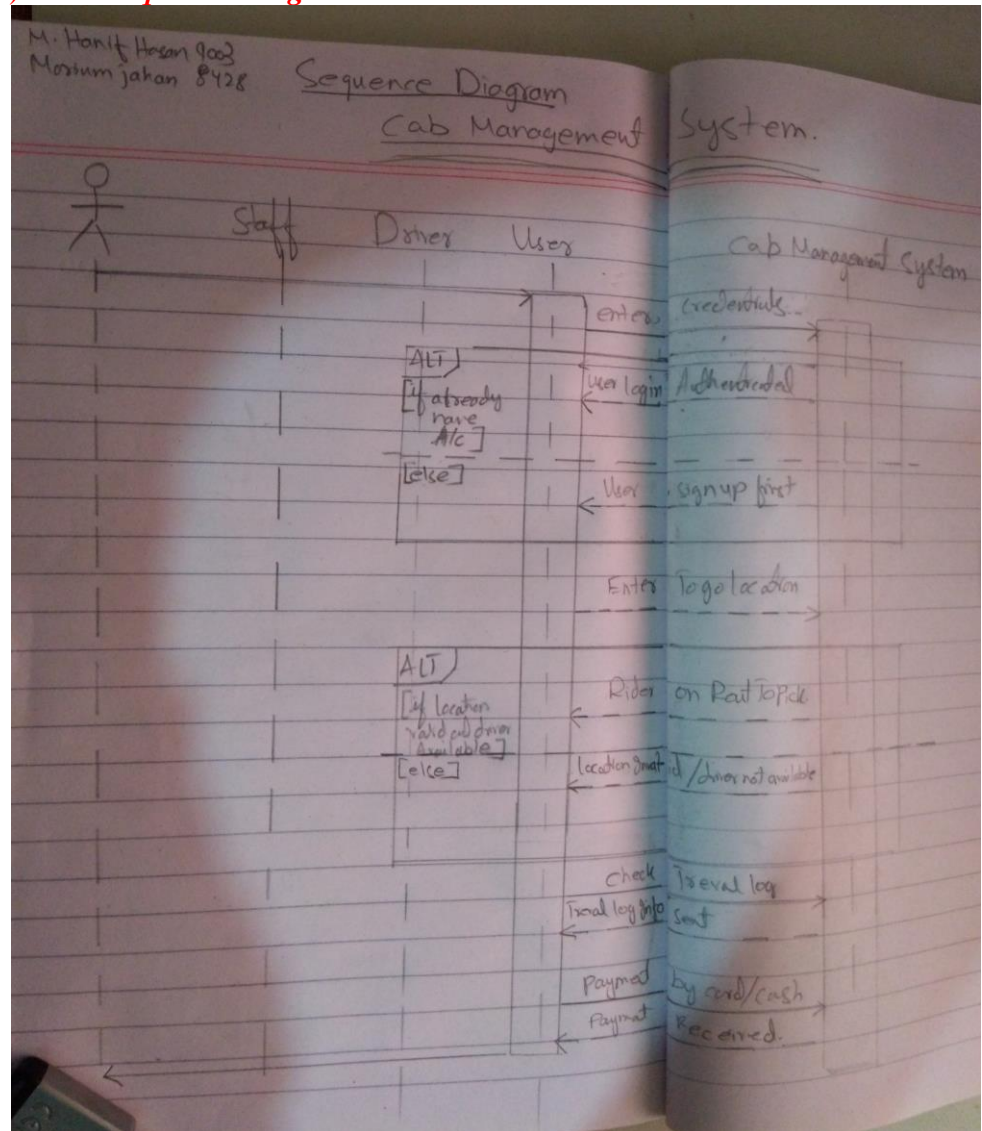 M. Hanif Hasan 9003
Morium jahan 8428
Sequence Diagram
Cab Management System.
Staff Driver User Cab Management System
enter credentials
ALT
[if already
have
A/c]
User login Authenticated
[else]
User signup first
Enter To go location
ALT
[if location
valid and driver
Available]
Rider on Rout To pick
[else]
location invalid / driver not available
Check Treval log
Treval log Info sent
Payment by card/cash
Payment Received.